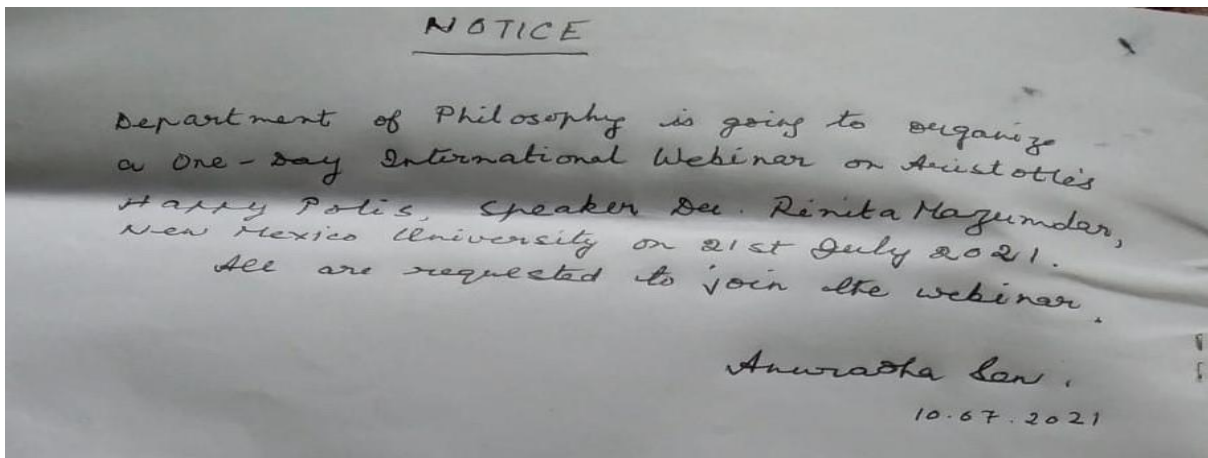 NOTICE
Department of Philosophy is going to organize
a One-Day International Webinar on Aristotle's
Happy Polis, Speaker Dr. Rinita Mazumdar,
New Mexico University on 21st July 2021.
All are requested to join the webinar.
Anuradha
10.07.2021